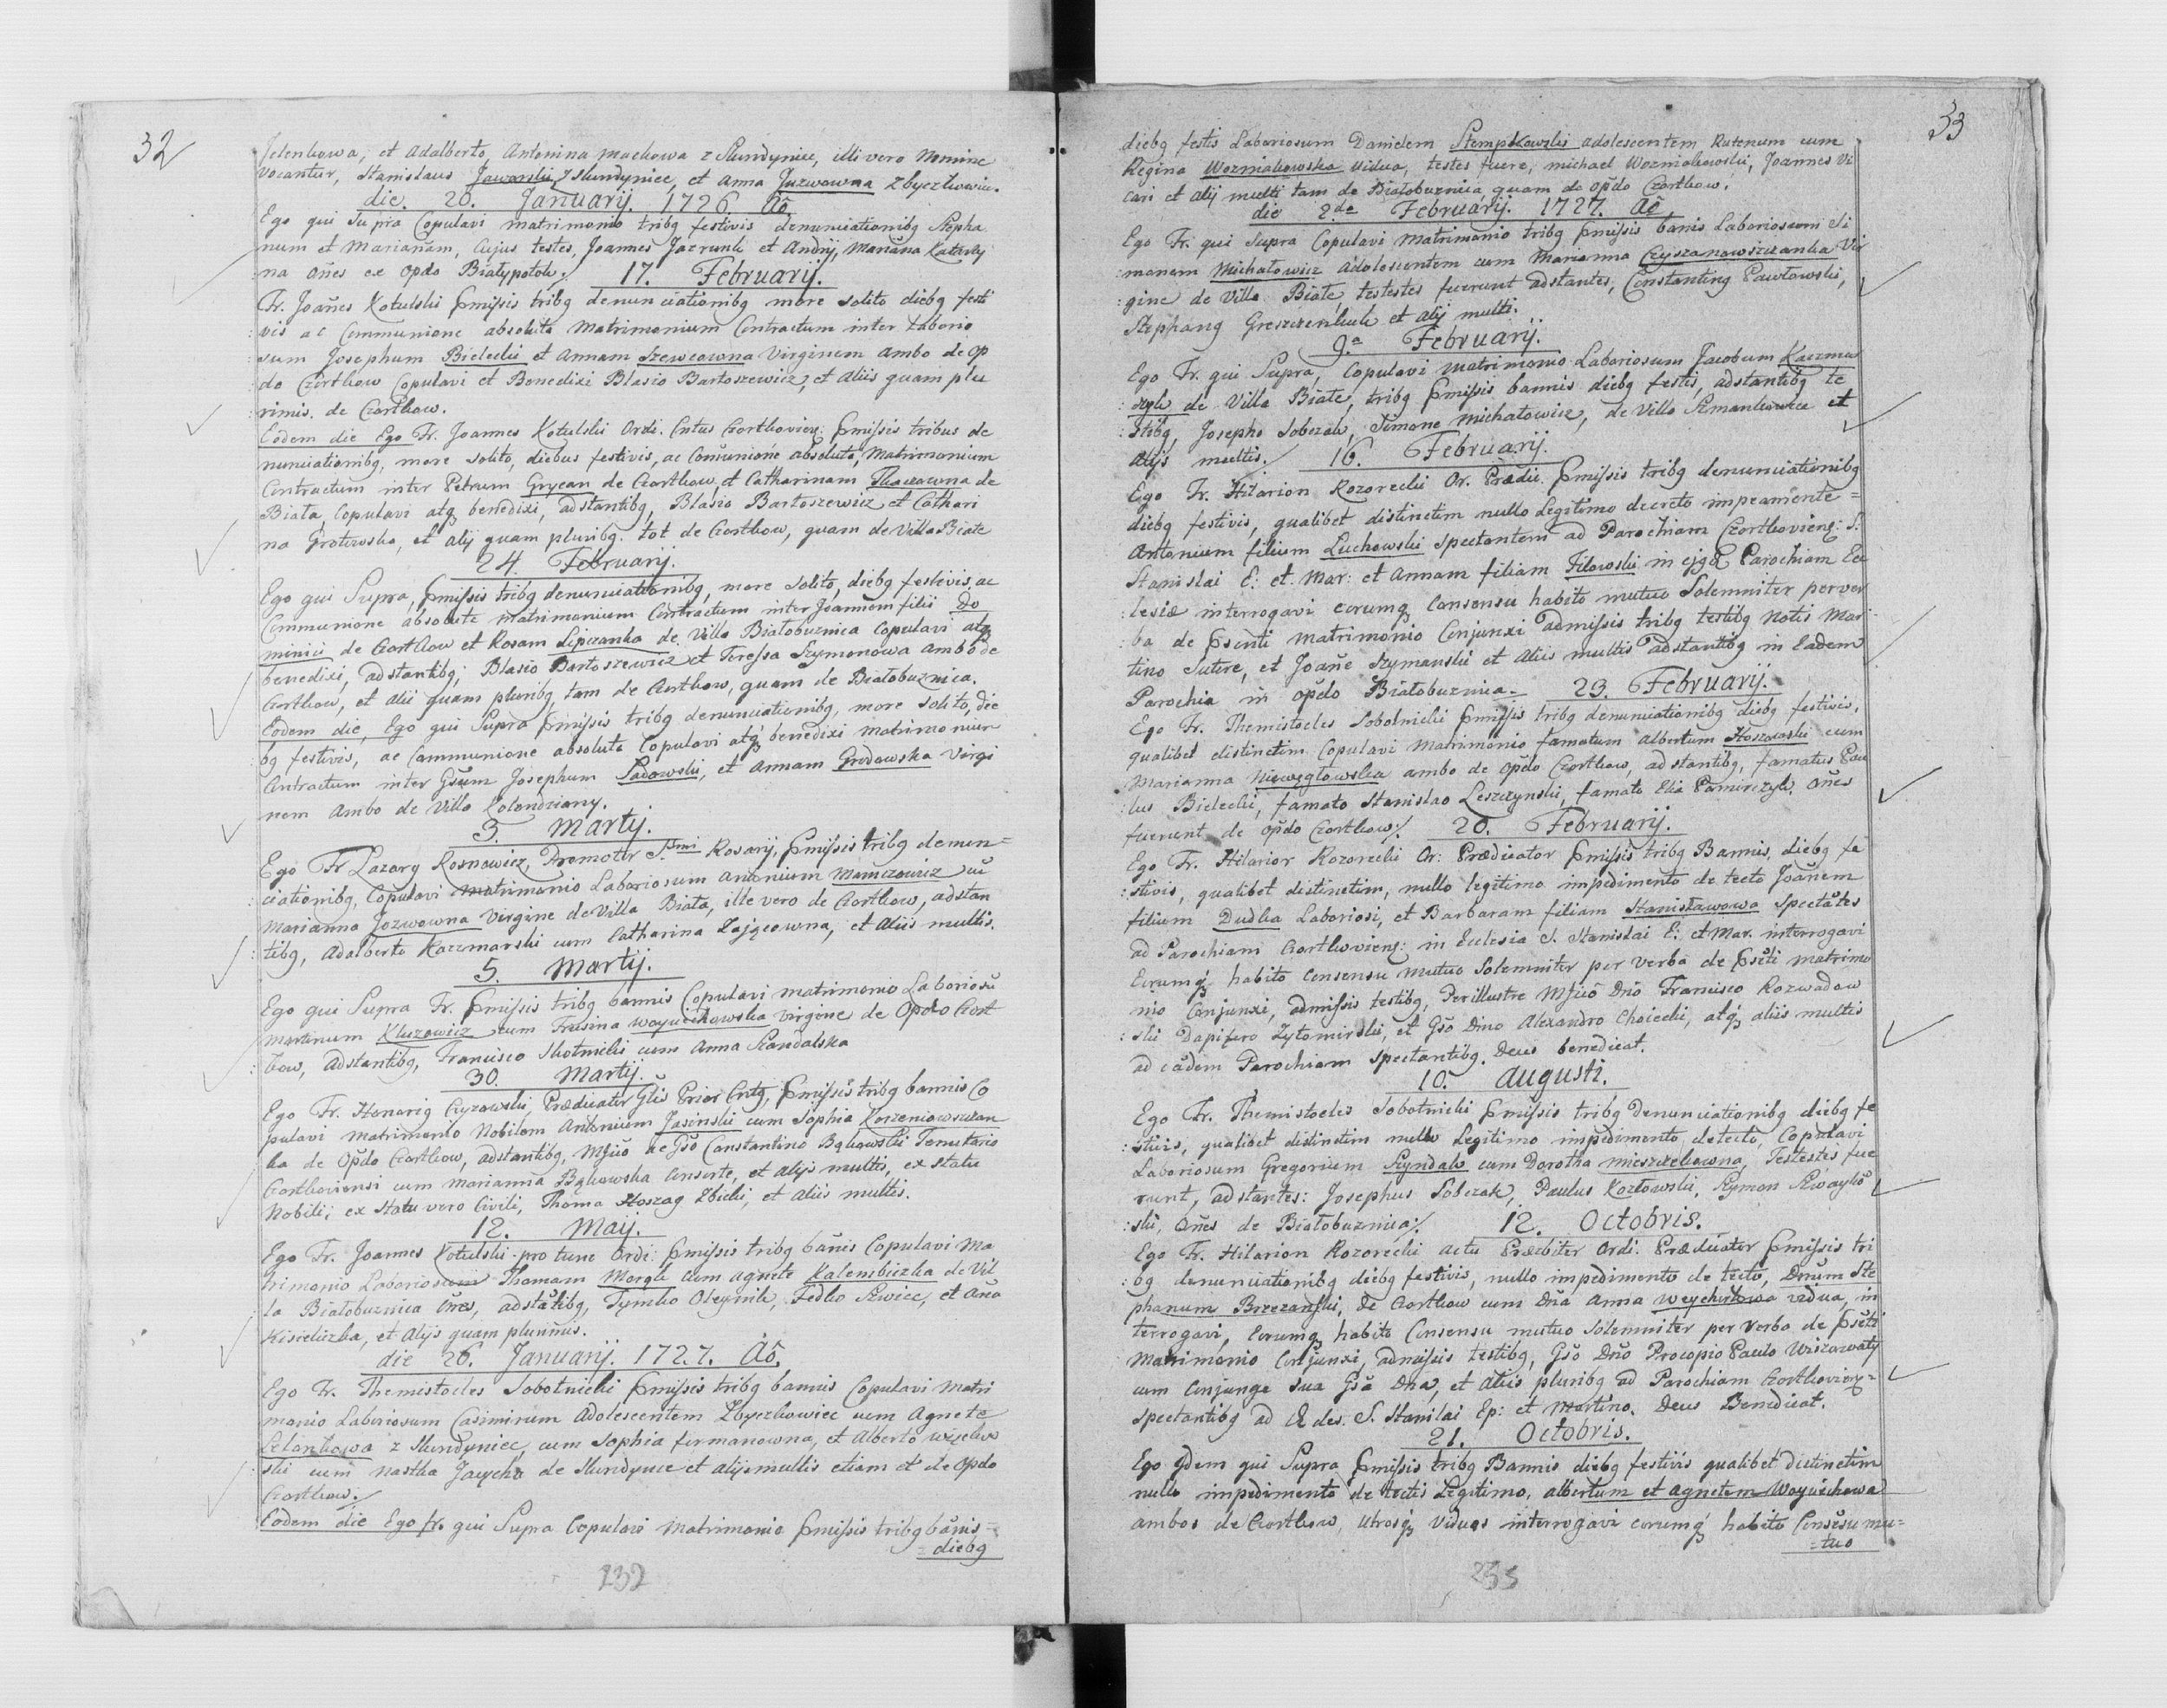 32
Jelenkowa, et Adalberto, Antonina Mackowa z Skundyniec, illi vero Nomine
vocantur, Stanislaus Jaworski z Skundyniec, et Anna Juzwowna Zbyczkowiec.
die. 20. Januarij. 1726 Aô
Ego qui Supra Copulavi matrimonio tribg festivis denunciationibg Stepha
num et Mariañem, Cujus testes, Joannes Jazrunk et Andrij, Mariána Katarzy
na oñes ex Opdo Białypotok.
17. Februarij.
Fr. Joañes Kotulski pmissis tribg denunciationibg more solito diebg festi
vis ac Communione absoluta Matrimonium Contractum inter Laborio
sum Josephum Bielecki et Annam Szewcowna Virginem ambo de Op
do Czortkow Copulavi et Benedixi Blasio Bartoszewicz, et Aliis quam plu
rimis. de Czortkow.
Eôdem die Ego Fr. Joannes Kotulski Ordi. Cntus Czortkovien: pmissis tribus de
nunciationibg, more solito, diebus festivis, ac Comunióne absoluta, Matrimonium
Contractum inter Petrum Grycan de Czortkow, et Catharinam Tkaczowna de
Biała, Copulavi atq benedixi, adstantibg, Blasio Bartoszewicz et Cathari
na Grotowska, et alij quam pluribg. tot de Czortkow, quam de Villa Biała
24. Februarij.
Ego qui Supra, pmissis tribg denunciationibg, more solito, diebg festivis, ac
Communione absoluta matrimonium Contractum inter Joannem filii Do
minici de Czortkow et Rosam Lipczanka de Villa Białobuznica Copulavi atq
benedixi, adstantibg; Blasio Bartoszewicz et Teressa Szymonowa ambo de
Czortkow, et alii quam pluribg tam de Czortkow, quam de Białobuznica.
Eodem die, Ego qui Supra pmissis tribg denunciationibg, more solito, die
bg festivis, ac Communione absoluta Copulavi atq benedixi matrimonium
Contractum inter Gsum Josephum Sadowski, et Annam Grodowska Virgi
nem Ambo de Villa Kolendziany.
3. Martij.
Ego Fr Lazarg Rosnowicz, Promotor Ssmi Rosarij, pmissis tribg denun=
ciationibg, Copulavi matrimonio Laboriosum Antonium Mamczowicz cû
Marianna Jozwowna Virgine de Villa Biała, ille vero de Czortkow, adstan
tibg, Adalberto Kaczmarski cum Catharina Zajęcowna, et Aliis multis.
5. Martij.
Ego qui Supra Fr. pmissis tribg bannis Copulavi matrimonio Laboriosû
Martinum Kluzowicz cum Frusina Woyciekowska virgine de Opdo Czort
kow, adstantibg, Francisco Skotnicki cum Anna Skandalska
30. Martij.
Ego Fr. Honorig Czyzowski, Prædicator Glis Prior Cntg, pmissis tribg bannis Co
pulavi matrimonio Nobilem Antonium Jasinski cum Sophia Korzeniowszczan
ka de Opdo Czortkow, adstantibg, Mfico ac Gso Constantino Bąkowski Tenutario
Czortkoviensi cum Marianna Bąkowska Consorte, et alijs multis, ex statu
Nobili; ex Statu vero Civili, Thoma Hoszag Zbicki, et Aliis multis.
12. Maij.
Ego Fr. Joannes Kotulski pro tunc Ordi: pmissis tribg bañis Copulavi Ma
trimonio Laboriosum Thomam Morgle cum Agnete Kalembiczka de Vil
la Białobuznica oñes, adstâtibg, Tymko Oleynik, Fedko Szwiec, et Aña
Kisieliczka, et Alijs quam plurimis.
die 26. Januarij. 1727. Aô.
Ego Fr. Themistocles Sobotnicki pmissis tribg bannis Copulavi Matri
monio Laboriosum Casimirum Adolescentem Zbyczkowiec cum Agnete
Lelonkowa z Skundyniec, cum Sophia furmanowna, et Alberto więcków
ski cum Nastka Jacycha de Skundynce et alijs multis etiam et de Opdo
Czortkow.
Eodem die Ego fr. qui Supra Copulavi Matrimonio pmissis tribg bânis=
=diebg
232
33
diebg festis Laboriosum Danielem Stempkowski adolescentem Rutenum cum
Regina Wozniakowska Vidua, testes fuere, michael Wozniakowski, Joannes Vi
cari et alij multi tam de Białobuznica quam de opdo Czortkow.
die 2da Februarij. 1727. Aô
Ego Fr. qui Supra Copulavi Matrimonio tribg pmissis banis Laboriosum Si
monem Michałowicz Adolescentem cum Marianna Czyszanowszczanka Vir
gine de Villa Biała, testestes fuerunt adstantes, Constanting Pawłowski,
Stephang Greszczenkuk et alij multi.
9.a Februarij.
Ego Fr. qui Supra, Copulavi matrimonio Laboriosum Jacobum Kaczmar
czyk de Villa Biała, tribg pmissis bannis diebg festis, adstantibg te
stibg, Josepho Sobczak, Simone Michałowicz, de Villa Szmankowce et
Alijs multis.
16. Februarij.
Ego Fr. Hilarion Kozorecki Or. Prædic. pmissis tribg denunciationibg
diebg festivis, qualibet distinctim nullo Legitimo decreto impeamento=
Antonium filium Luchowski spectantem ad Parochiam Czortkovieng: S.
Stanislai E: et. Mar: et Annam filiam Filowski in ejqd Parochiam Ecc
lesiæ interrogavi eorumq Consensu habito mutuo Solemniter per ver
ba de psenti Matrimonio Conjunxi admissis tribg testibg notis Mar
tino Sutore, et Joañe Szymanski et Aliis multis adstantibg in Eadem
Parochia in opdo Białobuznica.
23. Februarij.
Ego Fr. Themistocles Sobotnicki pmissis tribg denunciationibg diebg festivis,
qualibet distinctim Copulavi matrimonio famatum Albertum Hoszowski cum
Marianna Niewęgłowska ambo de opdo Czortkow, adstantibg, famatus Pau
lus Bielecki, famato Stanislao Leszczynski, famato Elia Pamirczyk, oñes
fuerunt de opdo Czortkow.
20. Februarij.
Ego Fr. Hilarior Kozorecki Or: Prædicator pmissis tribg Bannis, diebg fe
stivis, qualibet distinctim, nullo legitimo impedimento de tecto Joañem
filium Dudka Laboriosi, et Barbaram filiam Stanisławowa Spectâtes
ad Parochiam Czortkovieng: in Ecclesia S. Stanislai E: et Mar. interrogavi
Eorumq habito consensu mutuo Solemniter per verba de psêti matrimo
nio Conjunxi, admissis testibg, Perillustre Mfico Dno Francisco Kozwadow
ski Dapifero Zytomirski, et Gso Dino Alexandro Choiecki, atq aliis multis
ad eâdem Parochiam spectantibg. Deus benedicat.
10. Augusti.
Ego Fr. Themistocles Sobotnicki pmissis tribg Denunciationibg diebg fe
stivis, qualibet distinctim nullo Legitimo impedimento detecto, Copulavi
Laboriosum Gregorium Szyndak cum Dorotha Mieszczekowna, Testestes fue
runt, adstantes: Josephus Sobczak, Paulus Kozłowski, Szymon Szwayko
ski, oñes de Białobuznica.
12. Octobris.
Ego Fr. Hilarion Kozorecki actu Præsbiter Ordi. Prædicator pmissis tri
bg denunciationibg diebg festivis, nullo impedimento de tecto, Dnum Ste
phanum Brzezanski, de Czortkow cum Dña Anna Weychertowa vidua, in
terrogavi, Eorumq habito Consensu mutuo Solemniter per verba de psêti
Matrimonio Conjunxi, admissis testibg, Gso Dño Procopio Paulo Wiszowaty
cum Conjunge sua Gsa Dña, et Aliis pluribg ad Parochiam Czortkovien=
Spectantibg ad Ædes. S. Stanilai Ep: et Martino. Deus Benedicat.
21. Octobris.
Ego ydem qui Supra pmissis tribg Bannis diebg festivis qualibet distinctim
nullo impedimento de tectis Legitimo, albertum et agnetem Woyciechowa
ambos de Czortkow, utrosq Viduos interrogavi eorumq habito Consêsu mu=
=tuo
233